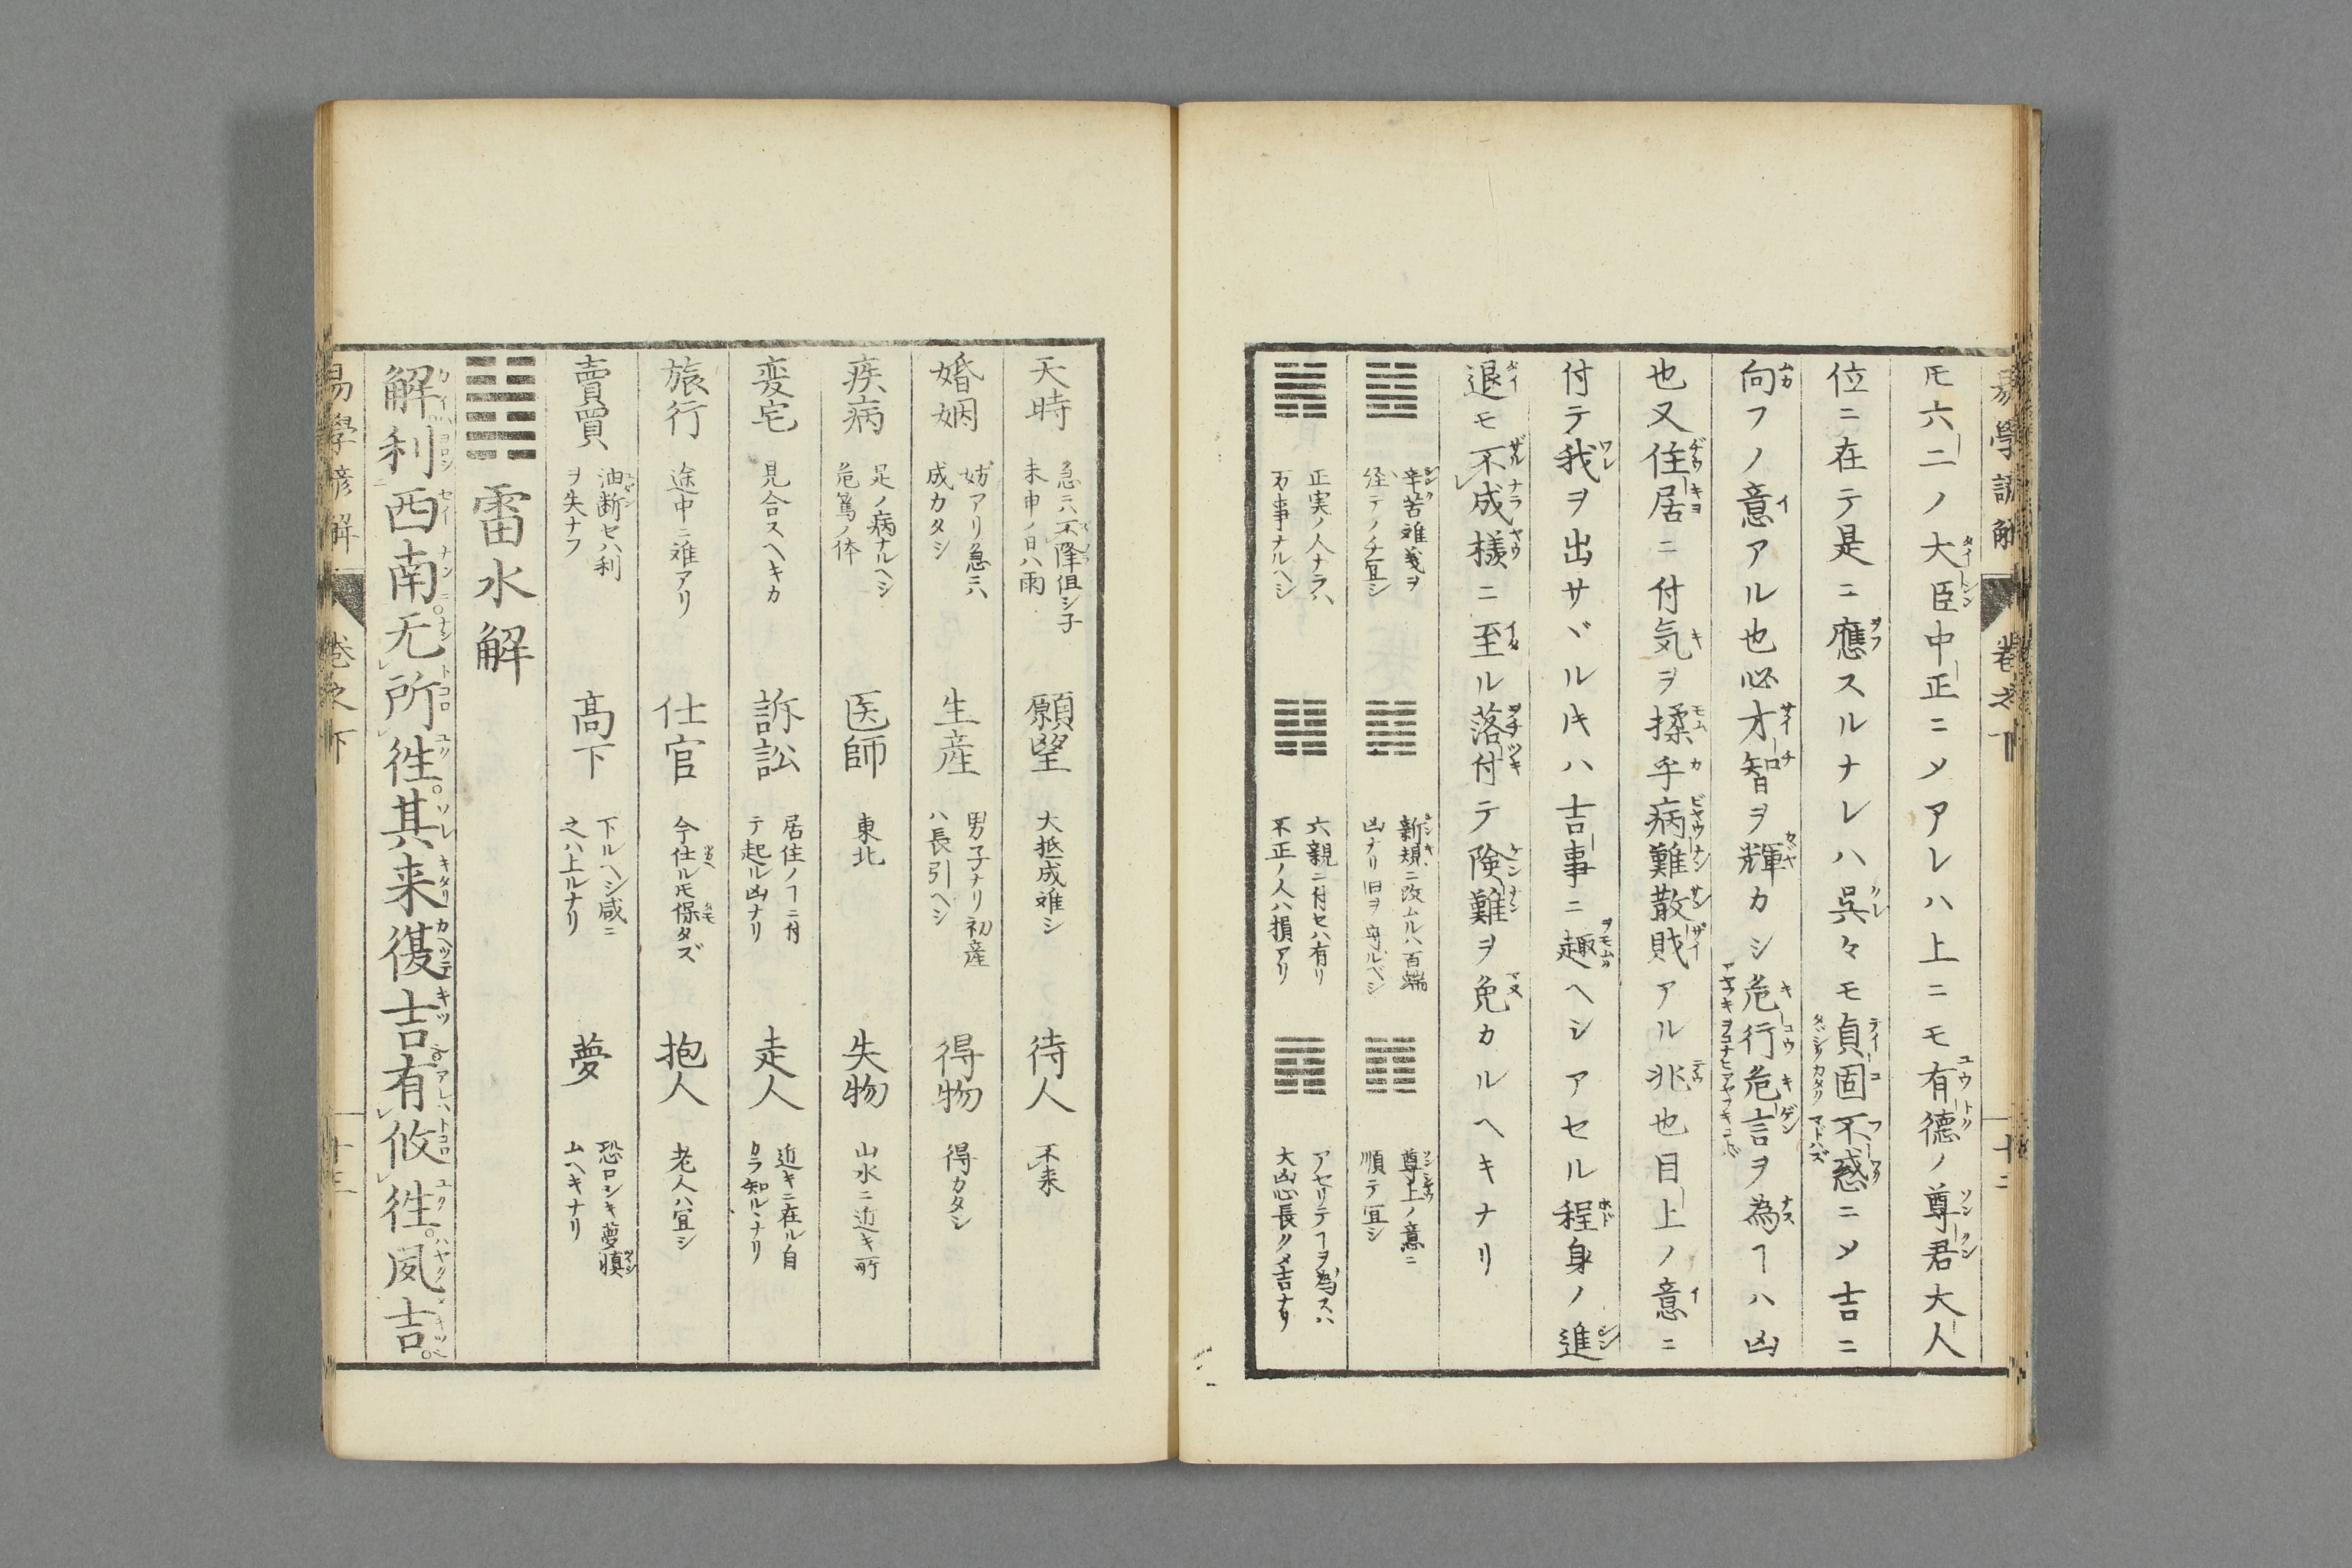 易學諺解 卷之下 十二
モ六二ノ大臣中正ニメアレハ上ニモ有德ノ尊君大人
位ニ在テ是ニ應スルナレハ呉々モ貞固不惑ニメ吉ニ
向フノ意アル也必才智ヲ輝カシ危行危言ヲ為ヿハ凶
也又住居ニ付気ヲ揉乎病難散財アル兆也目上ノ意ニ
付テ我ヲ出サヾルキハ吉事ニ趣ヘシアセル程身ノ進
退モ不成様ニ至ル落付テ険難ヲ免カルヘキナリ
䷾ 辛苦難義ヲ
経テノチ宜シ
新規ニ改ムルハ百端
凶ナリ旧ヲ守ルベシ
尊上ノ意ニ
順テ宜シ
正実ノ人ナラハ
万事ナルヘシ
六親ニ付セハ有リ
不正ノ人ハ損アリ
アセリテヿヲ為スハ
大凶心長クメ吉ナリ
天時 急ニハ不降但シ子
未申ノ日ハ雨
願望 大抵成難シ
待人 不来
婚姻 妨アリ急ニハ
成カタシ
生産 男子ナリ初産
ハ長引ヘシ
得物 得カタシ
疾病 足ノ病ナルヘシ
危篤ノ体
医師 東北
失物 山水ニ近キ所
変宅 見合スヘキカ
訴訟 居住ノヿニ付
テ起ル凶ナリ
走人 近キニ在ル自
カラ知ルヽナリ
旅行 途中ニ難アリ
仕官 今仕ルモ保タズ
抱人 老人ハ宜シ
賣買 油断セハ利
ヲ失ナフ
高下 下ルヘシ咸ニ
之ハ上ルナリ
夢 恐ロシキ夢慎
ムヘキナリ
䷧ 雷水解
解利西南无所徃其来復吉有攸徃夙吉
易學諺解 卷之下 十三